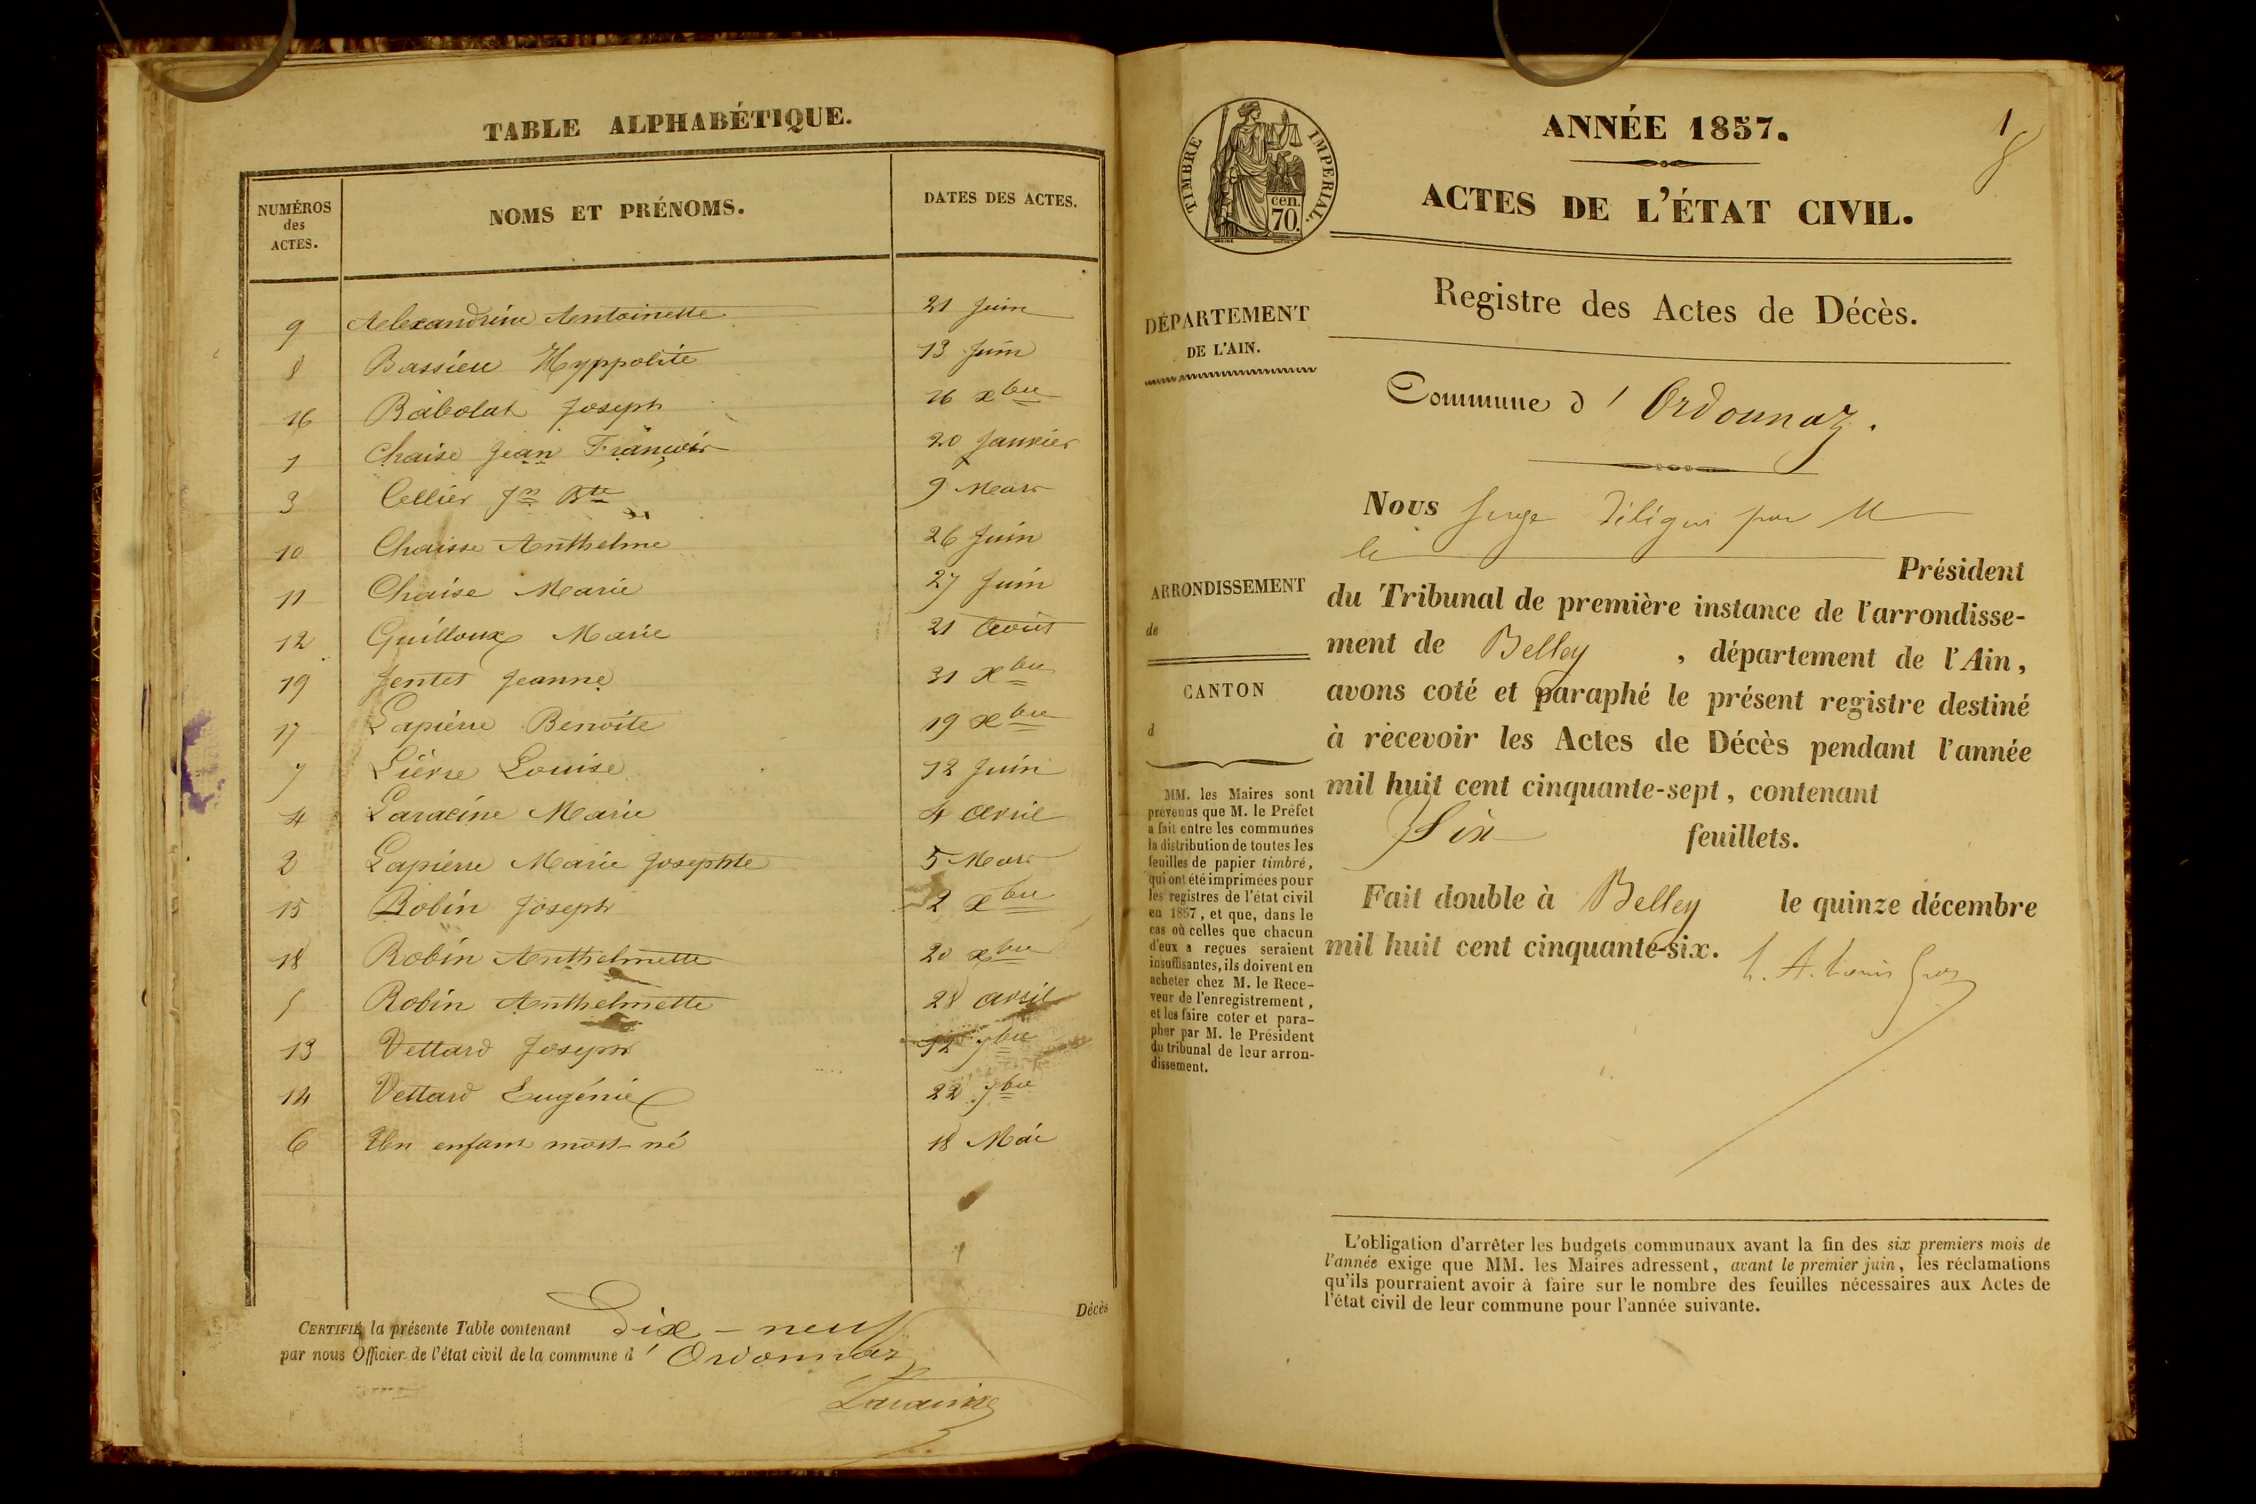 TABLE ALPHABÉTIQUE.
NUMÉROS
des
ACTES.
NOMS ET PRÉNOMS.
DATES DES ACTES.
9 Alexandrine Antoinette 21 Juin
8 Bassieu Hyppolite 13 Juin
16 Babolat Joseph 16 xbre
1 Chaise Jean François 20 Janvier
3 Cellier Jn Bte 9 Mars
10 Chaisse Anthelme 26 Juin
11 Chaise Marie 27 Juin
12 Guilloux Marie 21 Août
19 Jentet Jeanne 31 xbre
17 Lapierre Benoite 19 xbre
7 Lièvre Louise 12 Juin
4 Laracine Marie 4 Avril
2 Lapierre Marie Josephte 5 Mars
15 Robin Joseph 2 xbre
18 Robin Anthelmette 20 xbre
5 Robin Anthelmette 28 avril
13 Vettard Joseph 12 7bre
14 Vettard Eugénie 22 7bre
6 Un enfant mort-né 18 Mai
CERTIFIÉ la présente Table contenant Dix-neuf Décès
par nous Officier de l'état civil de la commune d'Ordonnaz
Laracine
TIMBRE IMPERIAL.
cen.
70.
1
ANNÉE 1857.
ACTES DE L'ÉTAT CIVIL.
DÉPARTEMENT
DE L'AIN.
ARRONDISSEMENT
de
CANTON
d
MM. les Maires sont
prévenus que M. le Préfet
a fait entre les communes
la distribution de toutes les
feuilles de papier timbré,
qui ont été imprimées pour
les registres de l'état civil
en 1857, et que, dans le
cas où celles que chacun
d'eux a reçues seraient
insuffisantes, ils doivent en
acheter chez M. le Rece-
veur de l'enregistrement,
et les faire coter et para-
pher par M. le Président
du tribunal de leur arron-
dissement.
Registre des Actes de Décès.
Commune d'Ordonnaz.
Nous Juge délégué par M
le Président
du Tribunal de première instance de l'arrondisse-
ment de Belley, département de l'Ain,
avons coté et paraphé le présent registre destiné
à recevoir les Actes de Décès pendant l'année
mil huit cent cinquante-sept, contenant
Six feuillets.
Fait double à Belley le quinze décembre
mil huit cent cinquante-six.
L'obligation d'arrêter les budgets communaux avant la fin des six premiers mois de
l'année exige que MM. les Maires adressent, avant le premier juin, les réclamations
qu'ils pourraient avoir à faire sur le nombre des feuilles nécessaires aux Actes de
l'état civil de leur commune pour l'année suivante.